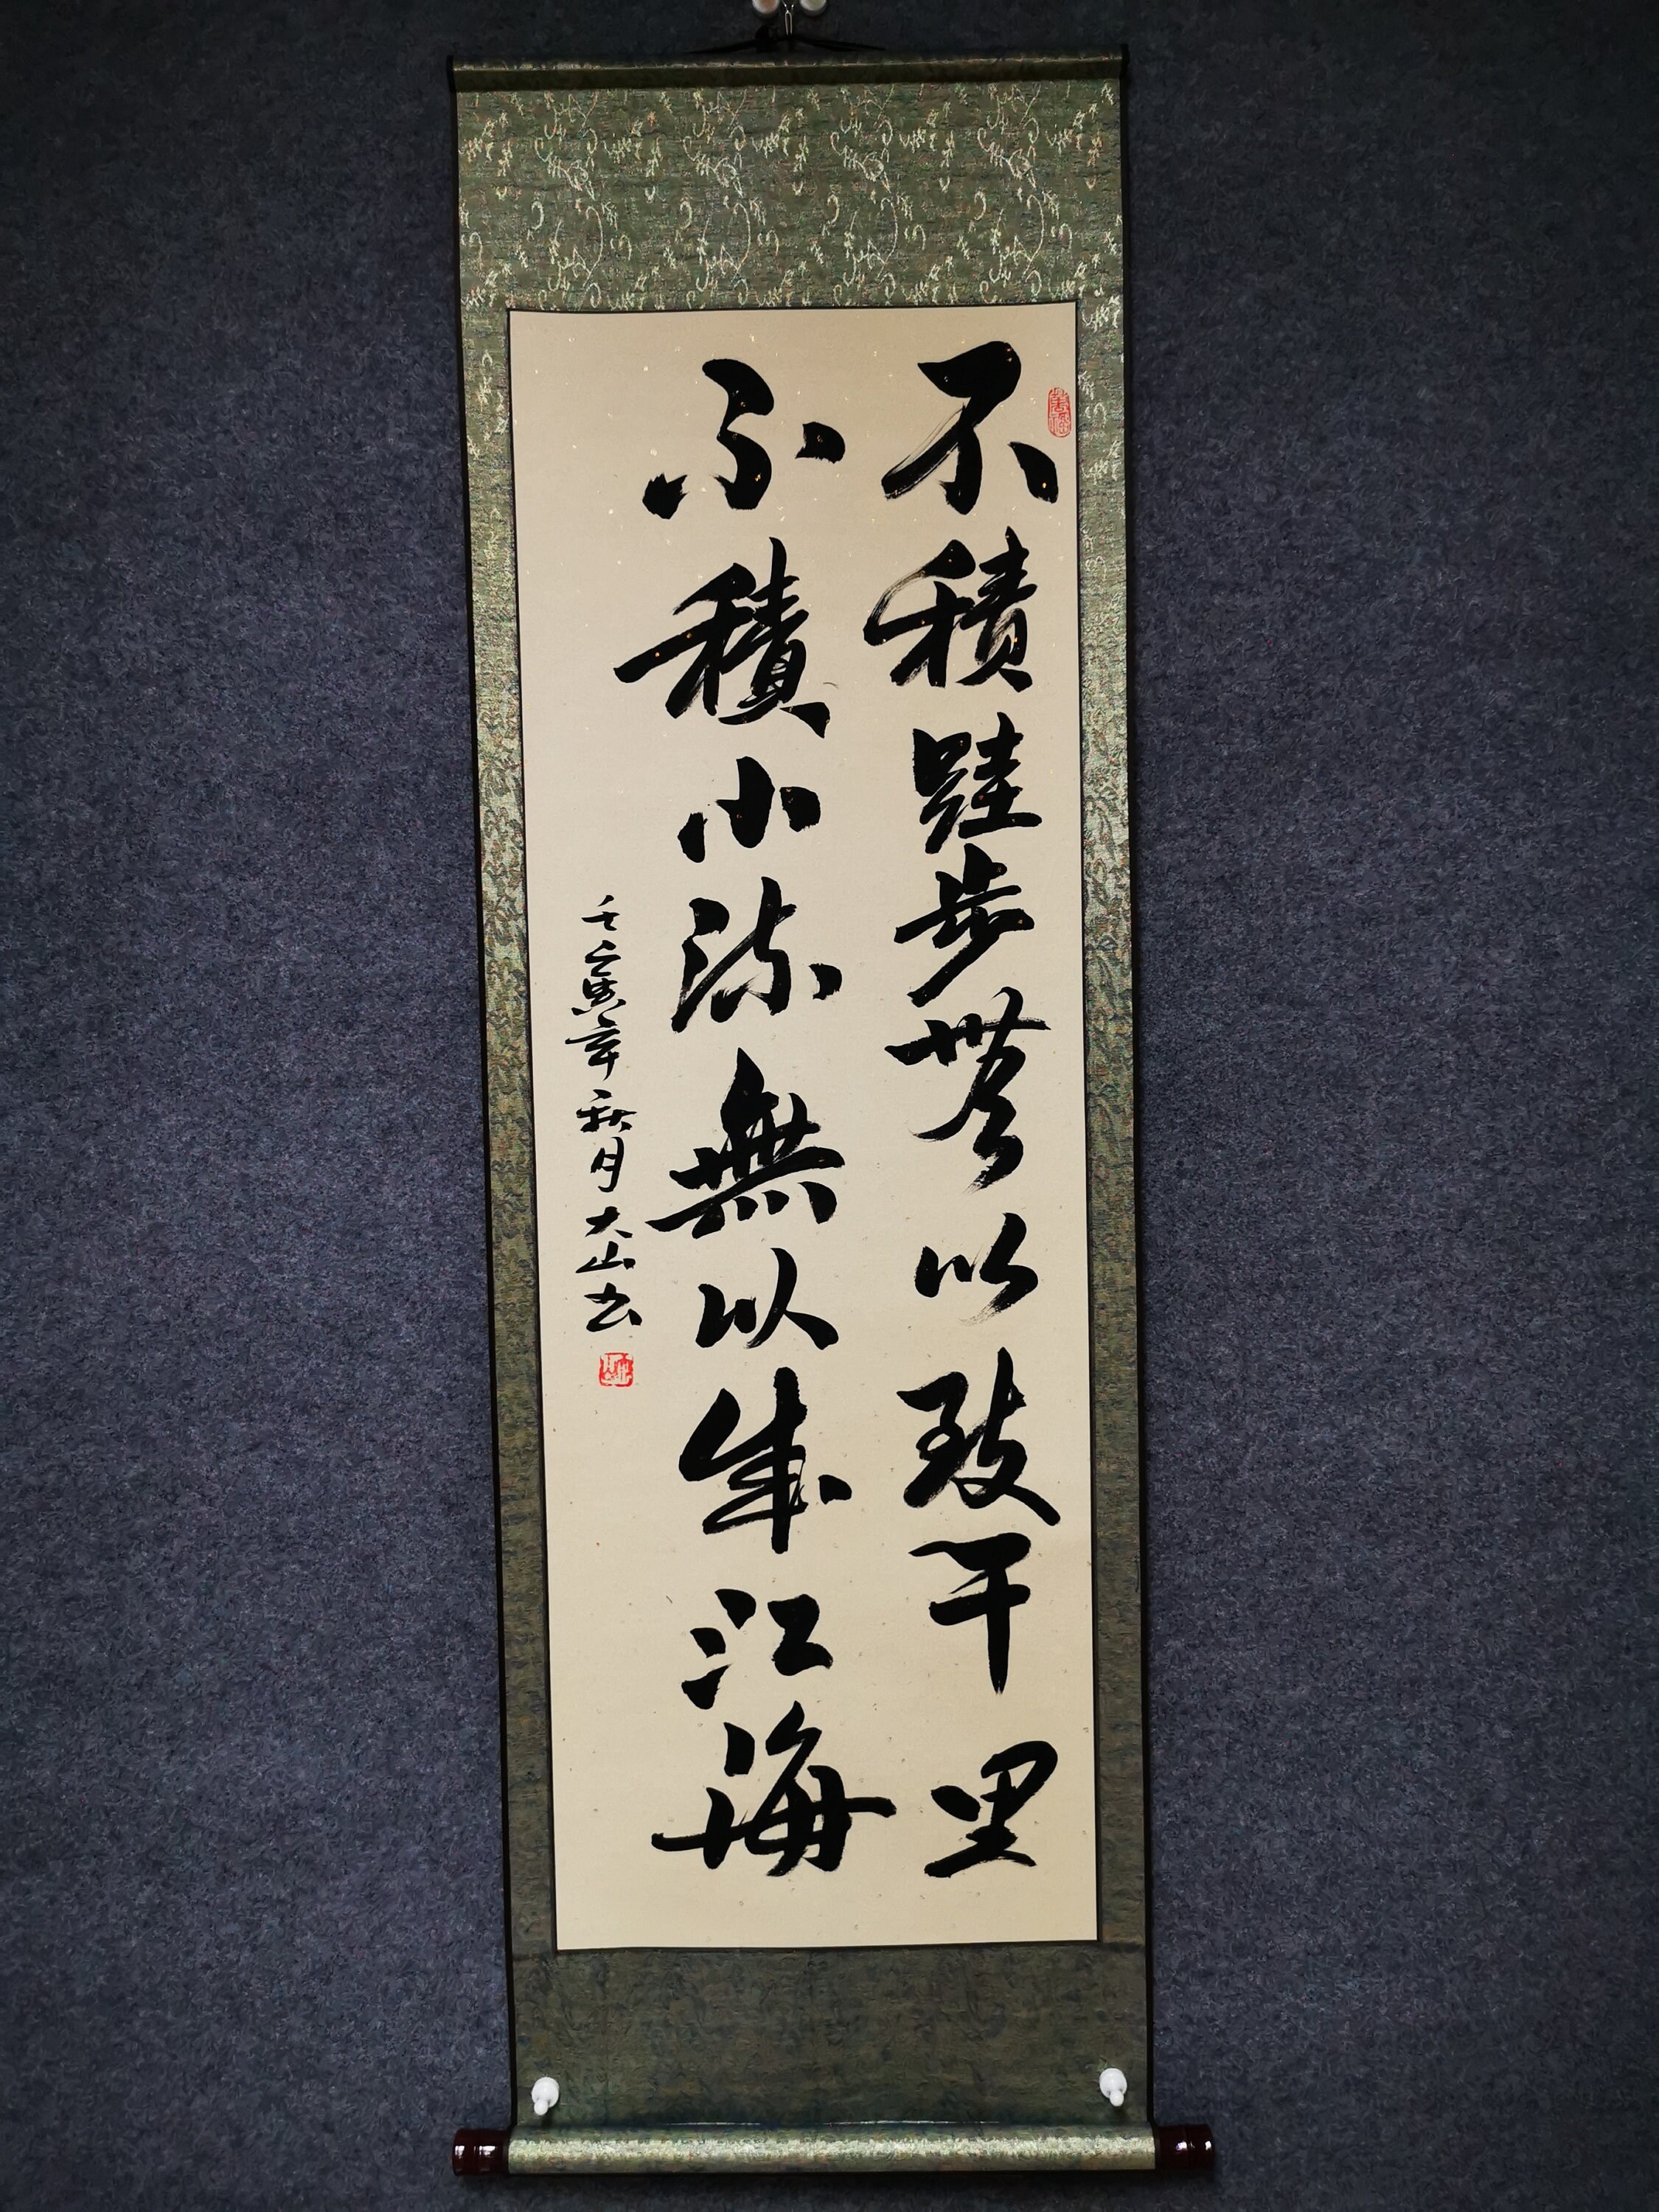 不積跬步無以致千里
不積小流無以成江海
壬寅年秋月大山书